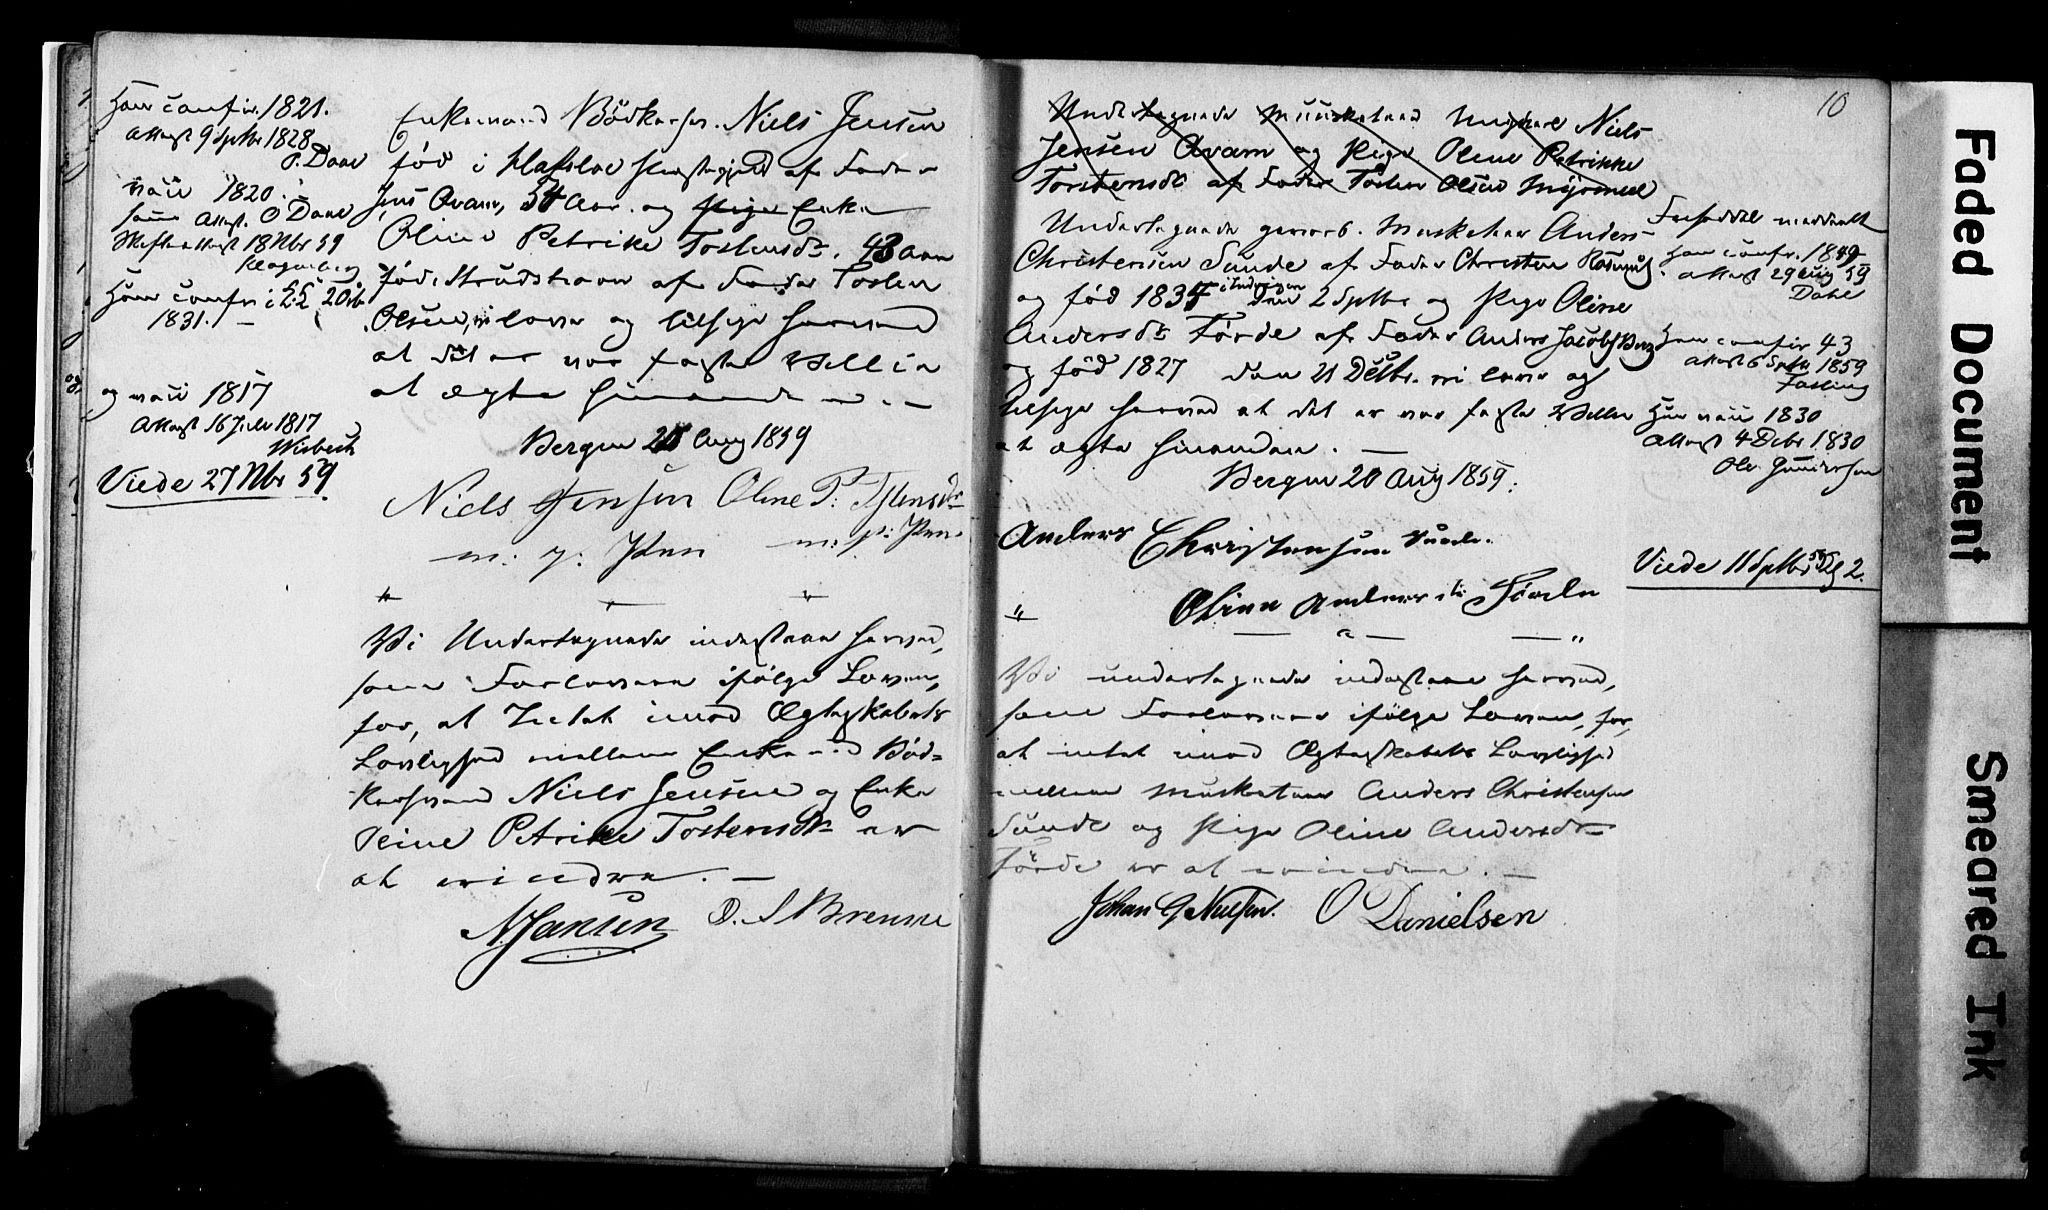 Han confir. 1821.
Attest 9 Septbr 1828
P. Daae
vacc 1820.
samme Attest. O Daae
Skifteattest 18 Nbr 59
Hun confir i 20
1831. —
og vacc 1817
Attest 16 Juli 1817
Wisbech
Viede 27 Nbr 59
Enkemand Bödkersv. Niels Jensen
fød i Hafsloe Præstegjeld af Fader
Jens Qvam, 54 Aar. og Pige Enke
Oline Petrike Tostensdr. 43 Aar
fød i Strudshavn af Fader Tosten
Olsen, vi love og tilsige herved
at det er vor faste Villie
at ægte hinanden. —
Bergen 20 Aug 1859
Niels Jensen Oline P: Tostensdr
m. p: Pen m. p: Pen
Vi Undertegnede indestaae herved,
som Forlovere ifølge Loven,
for, at Intet imod Ægteskabets
Lovlighed mellem Enkemand Bød-
kersvend Niels Jensen og Enke
Oline Petrike Tostensdr er
at erindre. —
N Jansen D. A Brenne
10
Undertegnede Muusketeer Niels
Jensen Qvam og Pige Oline Petrikke
Torstensdr af Fader Tosten Olsen
Undertegnede gevorb. Musketeer Anders
Christensen Sunde af Fader Christen Rasmus
og fød 1834 i Indvigen den 2 Septbr og Pige Oline
Andersdr Førde af Fader Anders Jacobs
og fød 1827 den 21 Decbr. vi love og
tilsige herved at det er vor faste Villie
at ægte hinanden. —
Bergen 20 Aug 1859.
Anders Christensen Sunde.
Oline Andersdtr Førde
Vi undertegnede indestaae herved,
som Forlovere ifølge Loven, for,
at intet imod Ægteskabets Lovlighed
mellem Musketeer Anders Christensen
Sunde og Pige Oline Andersdr
Førde er at erindre. —
Johan G Nielsen. O Danielsen
Fæsteddel meddeelt
Han confr. 1849
Attest 29 Aug 59
Dahl
Hun confir 43
Attest 6 Septbr 1859
Fasting
Hun vacc 1830
Attest 4 Decbr 1830
Ole Gundersen
Viede 11 Septbr 59 2.
Faded Document
Smeared Ink